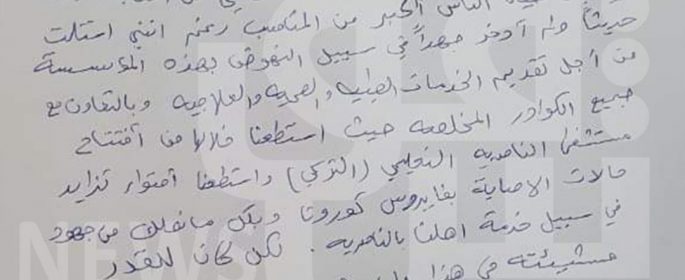 الناس اكبر من المناصب رغم انني استلمت
حديثاً ولم أدخر جهداً في سبيل النهوض بهذه المؤسسة
من أجل تقديم الخدمات الطبية والصحية والعلاجية وبالتعاون مع
جميع الكوادر المخلصه حيث استطعنا خلالها من أفتتاح
مستشفى الناصريه التعليمي (التركي) واستطعنا أحتواء تزايد
حالات الاصابة بفايروس كورونا وبكل مانملك من جهود
في سبيل خدمة اهلنا بالناصريه . لكن كان للقدر
مشيئته في هذا
NEWS